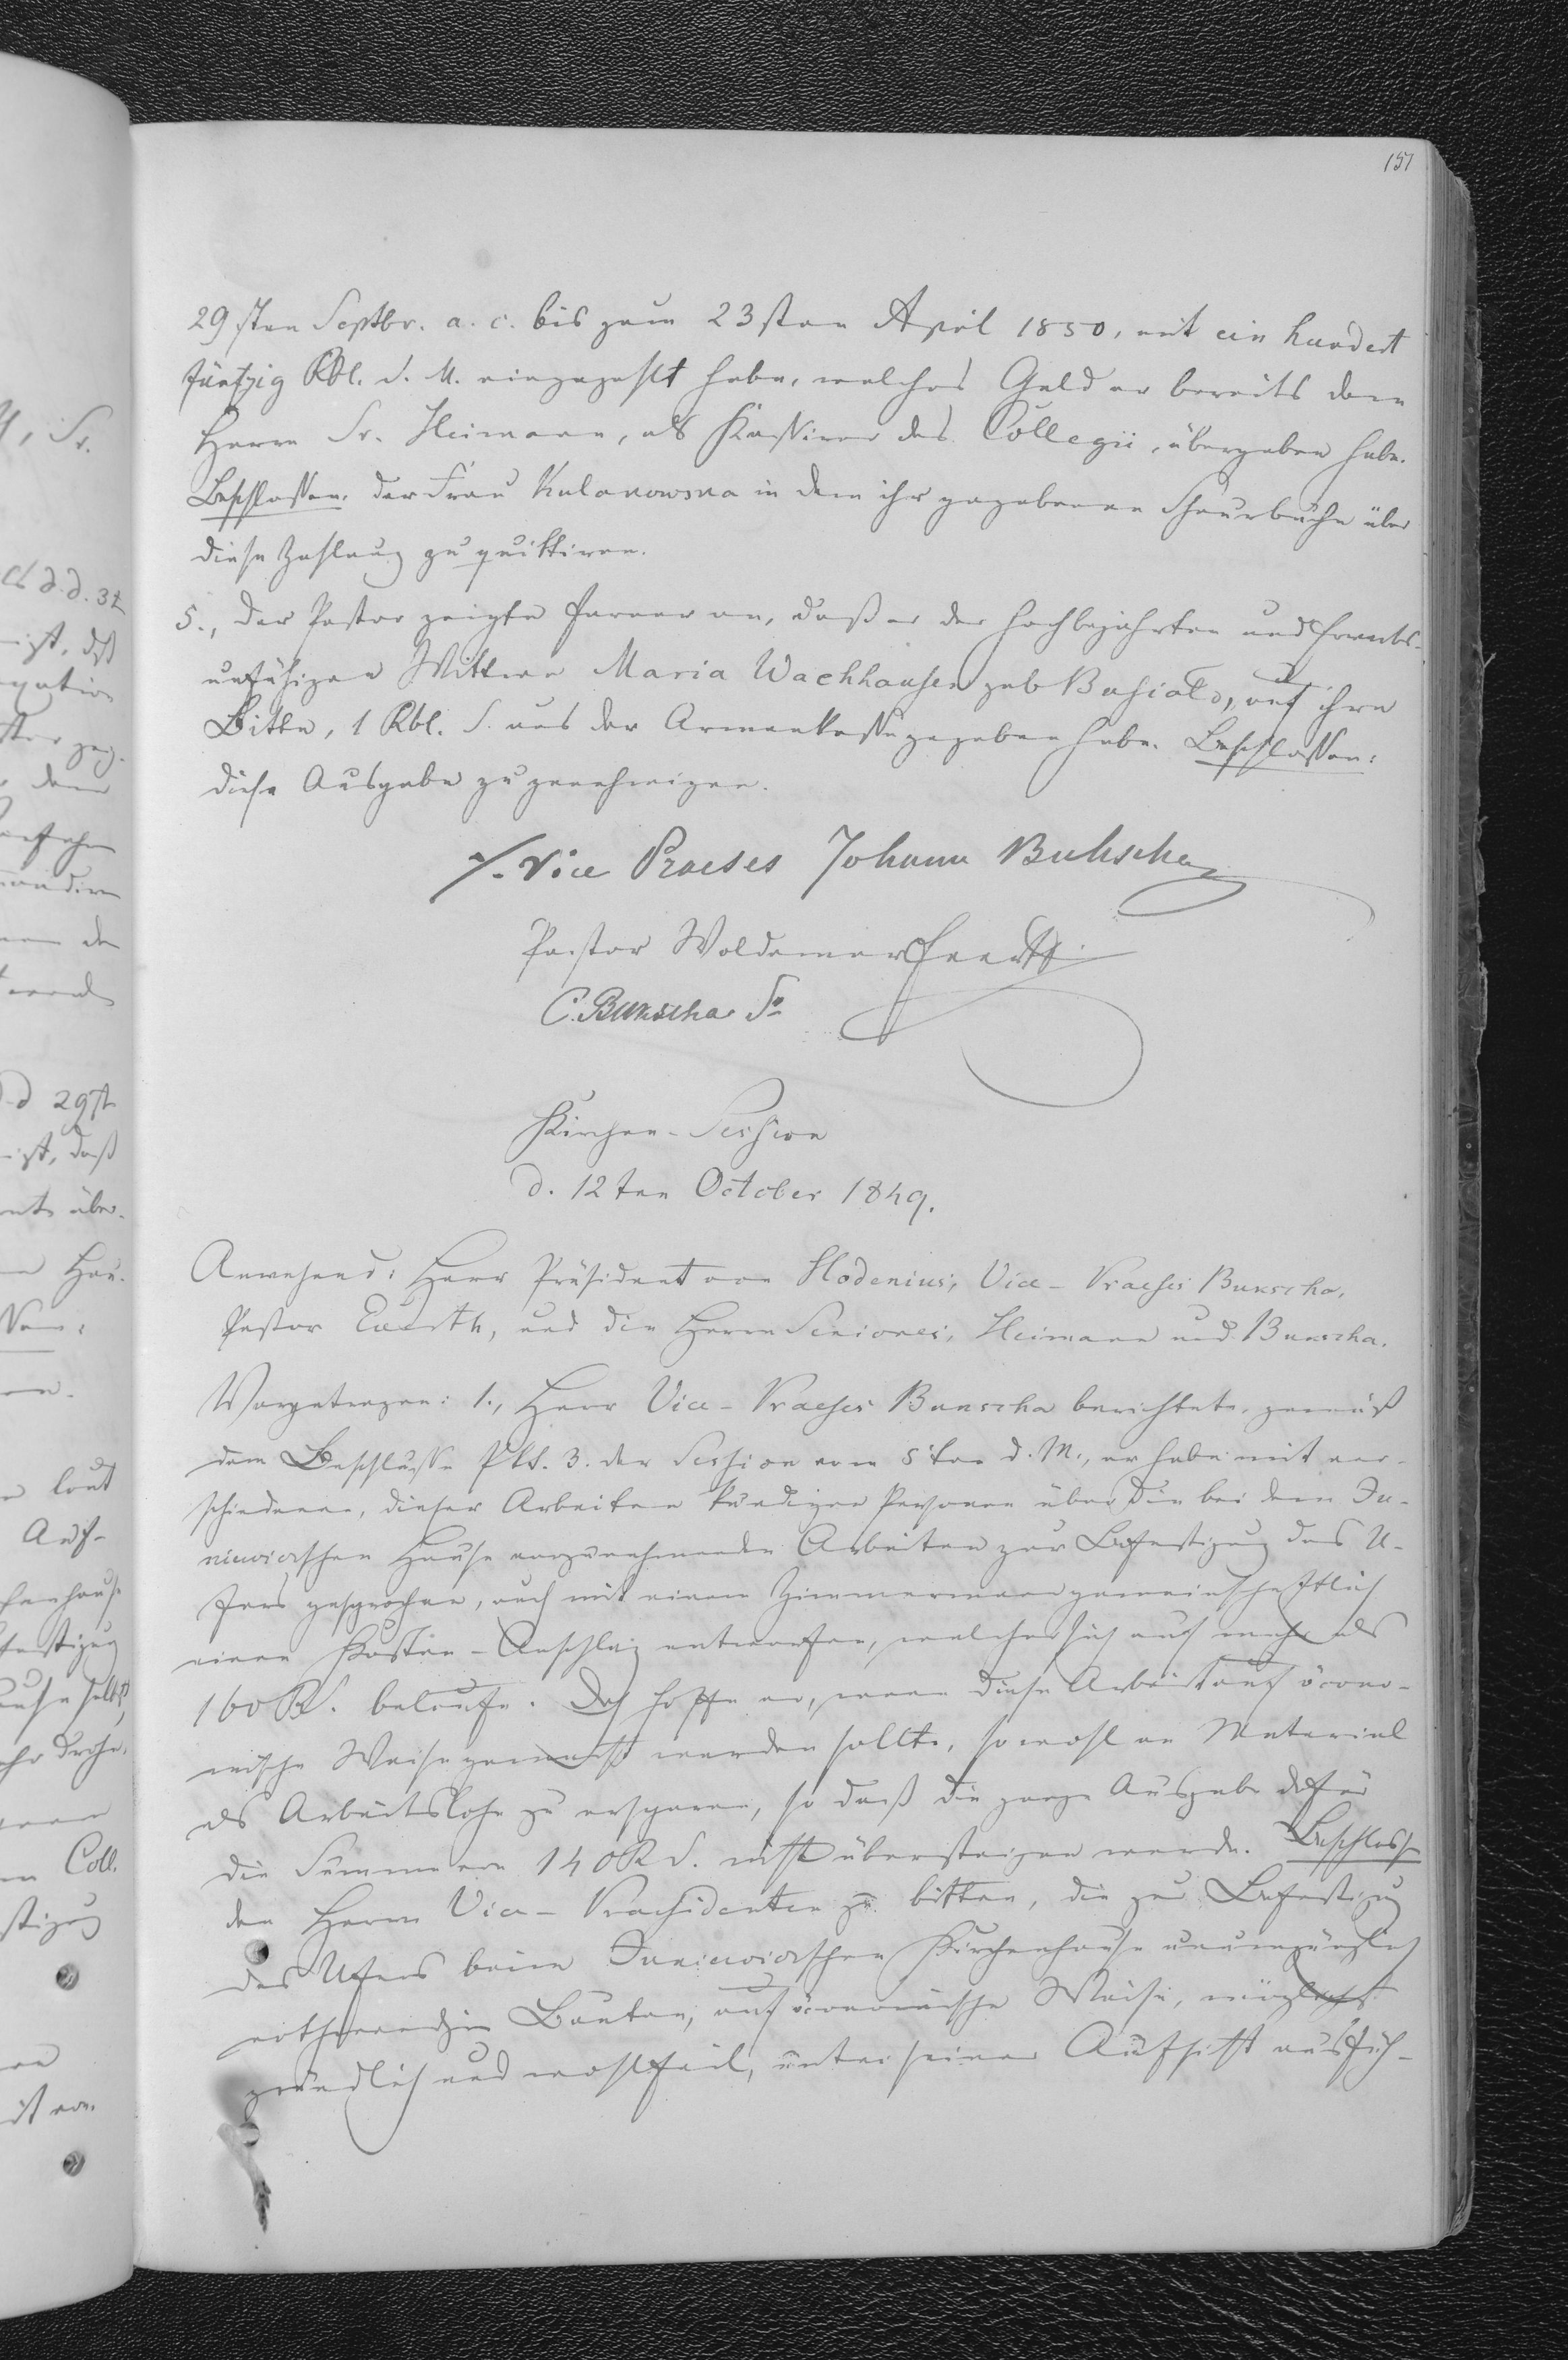 151
29sten Septbr. a. c. bis zum 23sten April 1850, mit ein hundert
fünfzig Rbl. S. M. eingezahlt habe, welches Geld er bereits dem
Herrn Sr. Heimann, als Kassirer des Collegii, übergeben habe.
Beschlossen: der Frau Kulakowska in dem ihr gegebenen Schnurbuche über
diese Zahlung zu quittiren.
5., Der Pastor zeigte ferner an, daß er der hochbejahrten und erwerbs-
unfähigen Wittwe Maria Wachhausen geb , auf ihre
Bitte, 1 Rbl. S. aus der Armenkasse gegeben habe. Beschlossen:
diese Ausgabe zu genehmigen.
Vice Praeses Johann Bukscha
Pastor Woldemar Everth
C. Bukscha Sr
Kirchen-Session
d. 12ten October 1849.
Anwesend: Herr Präsident von Hodenius, Vice-Praeses Bukscha,
Pastor Everth, und die Herrn Seniores, Heimann und Bukscha.
Vorgetragen: 1., Herr Vice-Praeses Bukscha berichtete, gemäß
dem Beschlusse Pkt. 3. der Session vom 5ten d. M., er habe mit ver-
schiedenen, dieser Arbeiten kundigen Personen über die bei dem Ju-
niewiczschen Hause vorzunehmenden Arbeiten zur Befestigung des U-
fers gesprochen, auch mit einem Zimmermann gemeinschaftlich
einen Kosten-Anschlag entworfen, welcher sich auf mehr als
160 R S. belaufe. Doch hoffe er, wenn diese Arbeit auf öcono-
mische Weise gemacht werden sollte, sowohl an Material
als Arbeitslohn zu ersparen, so daß die ganze Ausgabe dafür
die Summe von 140 R S. nicht übersteigen werde. Beschlossen
den Herrn Vice-Praesidenten zu bitten, die zur Befestigung
des Ufers beim Juniewiczschen Kirchenhause unumgänglich
nothwendigen Bauten, auf öconomische Weise, möglichst
gründlich und wohlfeil, unter seiner Aufsicht ausfüh-